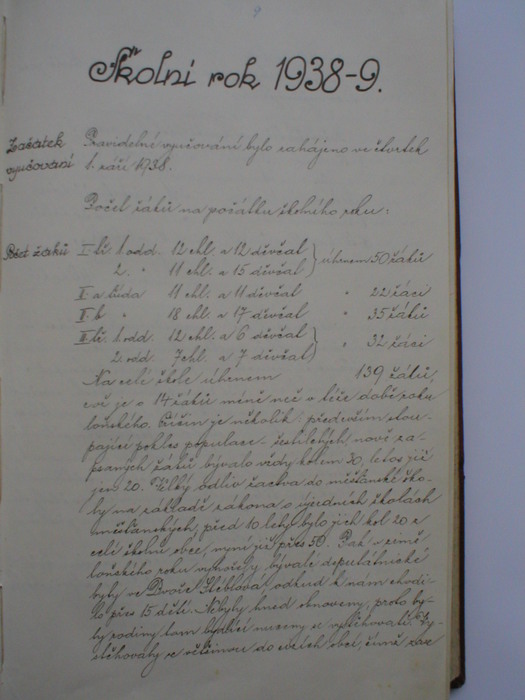 Školní rok 1938-9.
Začátek vyučování
Pravidelné vyučování bylo zahájeno ve čtvrtek
1. září 1938.
Počet žáků na počátku školního roku:
Počet žáků
I. tř. 1. odd. 12 chl. a 12 děvčat } úhrnem 50 žáků
2. " 11 chl. a 15 děvčat
II a třída 11 chl. a 11 děvčat " 22 žáci
II b " 18 chl. a 17 děvčat " 35 žáků
III. tř. 1. odd. 12 chl. a 6 děvčat } " 32 žáci
2. odd. 7 chl. a 7 děvčat
Na celé škole úhrnem 139 žáků,
což je o 14 žáků méně než o téže době roku
loňského. Příčin je několik: především stou-
pající pokles populace - šestiletých, nově za-
psaných žáků bývalo vždy kolem 30, letos již
jen 20. Velký odliv žactva do měšťanské ško-
ly na základě zákona o újezdních školách
měšťanských, před 10 lety bylo jich kol 20 z
celé školní obce, nyní již přes 50. Pak v zimě
loňského roku vyhořely bývalé deputátnické
byty ve Dvoře Stéblová, odkud k nám chodi-
lo přes 15 dětí. Nebyly hned obnoveny, proto by-
ly rodiny tam bydlící nuceny se vystěhovati. Vy-
stěhovaly se většinou do cizích obcí, čímž zase